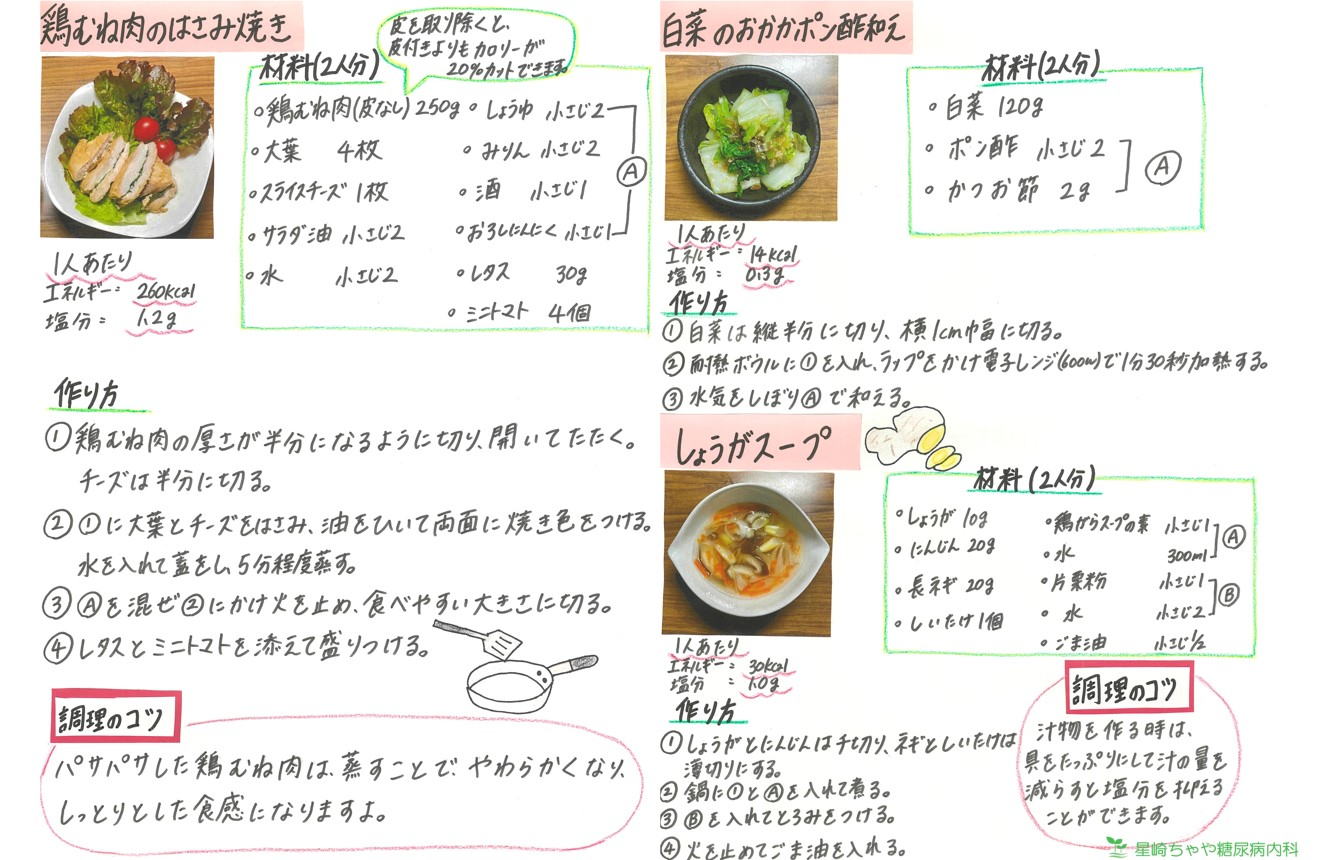 鶏むね肉のはさみ焼き
皮を取り除くと、
皮付きよりもカロリーが
20%カットできます。
材料(2人分)
・鶏むね肉(皮なし) 250g
・大葉 4枚
・スライスチーズ 1枚
・サラダ油 小さじ2
・水 小さじ2
・しょうゆ 小さじ2
・みりん 小さじ2
・酒 小さじ1
・おろしにんにく 小さじ1
Ⓐ
・レタス 30g
・ミニトマト 4個
1人あたり
エネルギー: 260kcal
塩分: 1.2g
作り方
① 鶏むね肉の厚さが半分になるように切り、開いてたたく。
チーズは半分に切る。
② ①に大葉とチーズをはさみ、油をひいて両面に焼き色をつける。
水を入れて蓋をし、5分程度蒸す。
③ Ⓐを混ぜ②にかけ火を止め、食べやすい大きさに切る。
④ レタスとミニトマトを添えて盛りつける。
調理のコツ
パサパサした鶏むね肉は、蒸すことで、やわらかくなり、
しっとりとした食感になりますよ。
白菜のおかかポン酢和え
材料(2人分)
・白菜 120g
・ポン酢 小さじ2
・かつお節 2g
Ⓐ
1人あたり
エネルギー: 14kcal
塩分: 0.3g
作り方
① 白菜は縦半分に切り、横1cm巾幅に切る。
② 耐熱ボウルに①を入れ、ラップをかけ電子レンジ(600w)で1分30秒加熱する。
③ 水気をしぼりⒶで和える。
しょうがスープ
材料(2人分)
・しょうが 10g
・にんじん 20g
・長ネギ 20g
・しいたけ 1個
・鶏がらスープの素 小さじ1
・水 300ml
Ⓐ
・片栗粉 小さじ1
・水 小さじ2
Ⓑ
・ごま油 小さじ1/2
1人あたり
エネルギー: 30kcal
塩分: 1.0g
作り方
① しょうがとにんじんは千切り、ネギとしいたけは
薄切りにする。
② 鍋に①とⒶを入れて煮る。
③ Ⓑを入れてとろみをつける。
④ 火を止めてごま油を入れる。
調理のコツ
汁物を作る時は、
具をたっぷりにして汁の量を
減らすと塩分を抑える
ことができます。
星崎ちゃや糖尿病内科